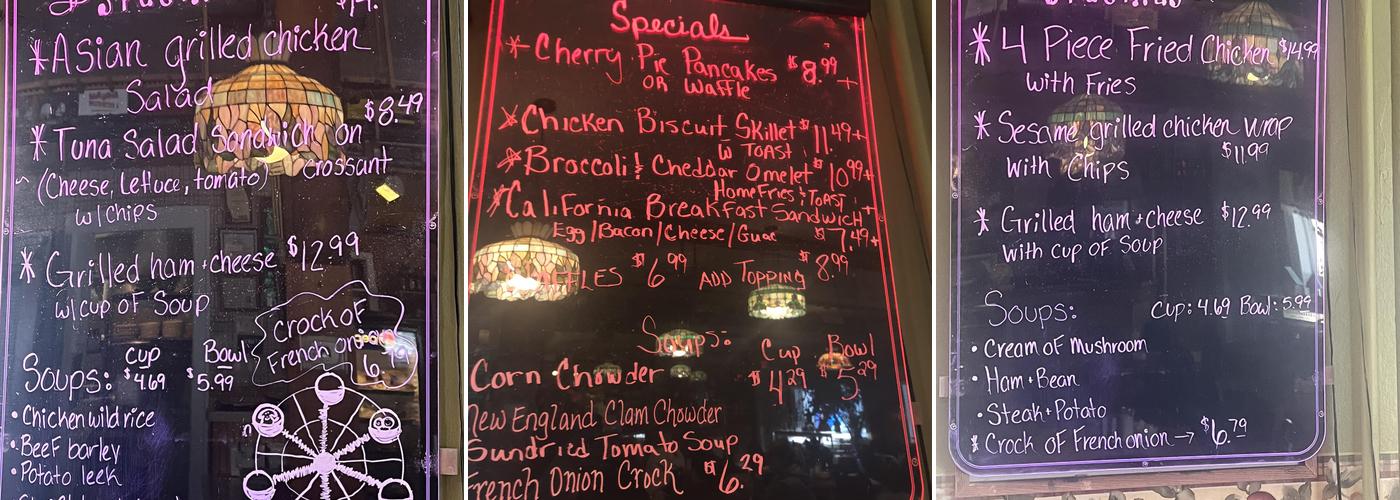 *Asian grilled chicken
Salad $8.49
*Tuna Salad Sandwich on
Crossant
(Cheese, Lettuce, tomato)
w/chips
* Grilled ham + cheese $12.99
w/cup of Soup
Crock of
French onion
Soups: Cup Bowl
$4.69 $5.99
• Chicken wild rice
• Beef barley
• Potato leek
Specials
* Cherry Pie Pancakes $8.99+
OR Waffle
* Chicken Biscuit Skillet $11.49+
W TOAST
* Broccoli & Cheddar Omelet $10.99+
HomeFries & TOAST
* California Breakfast Sandwich
Egg/Bacon/Cheese/Guac $7.49+
$6.99 ADD TOPPING $8.99
Soups: Cup Bowl
Corn Chowder $4.29 $5.29
New England Clam Chowder
Sundried Tomato Soup
French Onion Crock $6.29
* 4 Piece Fried Chicken $14.99
with Fries
* Sesame grilled chicken wrap
with Chips $11.99
* Grilled ham + cheese $12.99
with cup of Soup
Soups: Cup: 4.69 Bowl: 5.99
• Cream of Mushroom
• Ham + Bean
• Steak + Potato
* Crock of French onion → $6.79